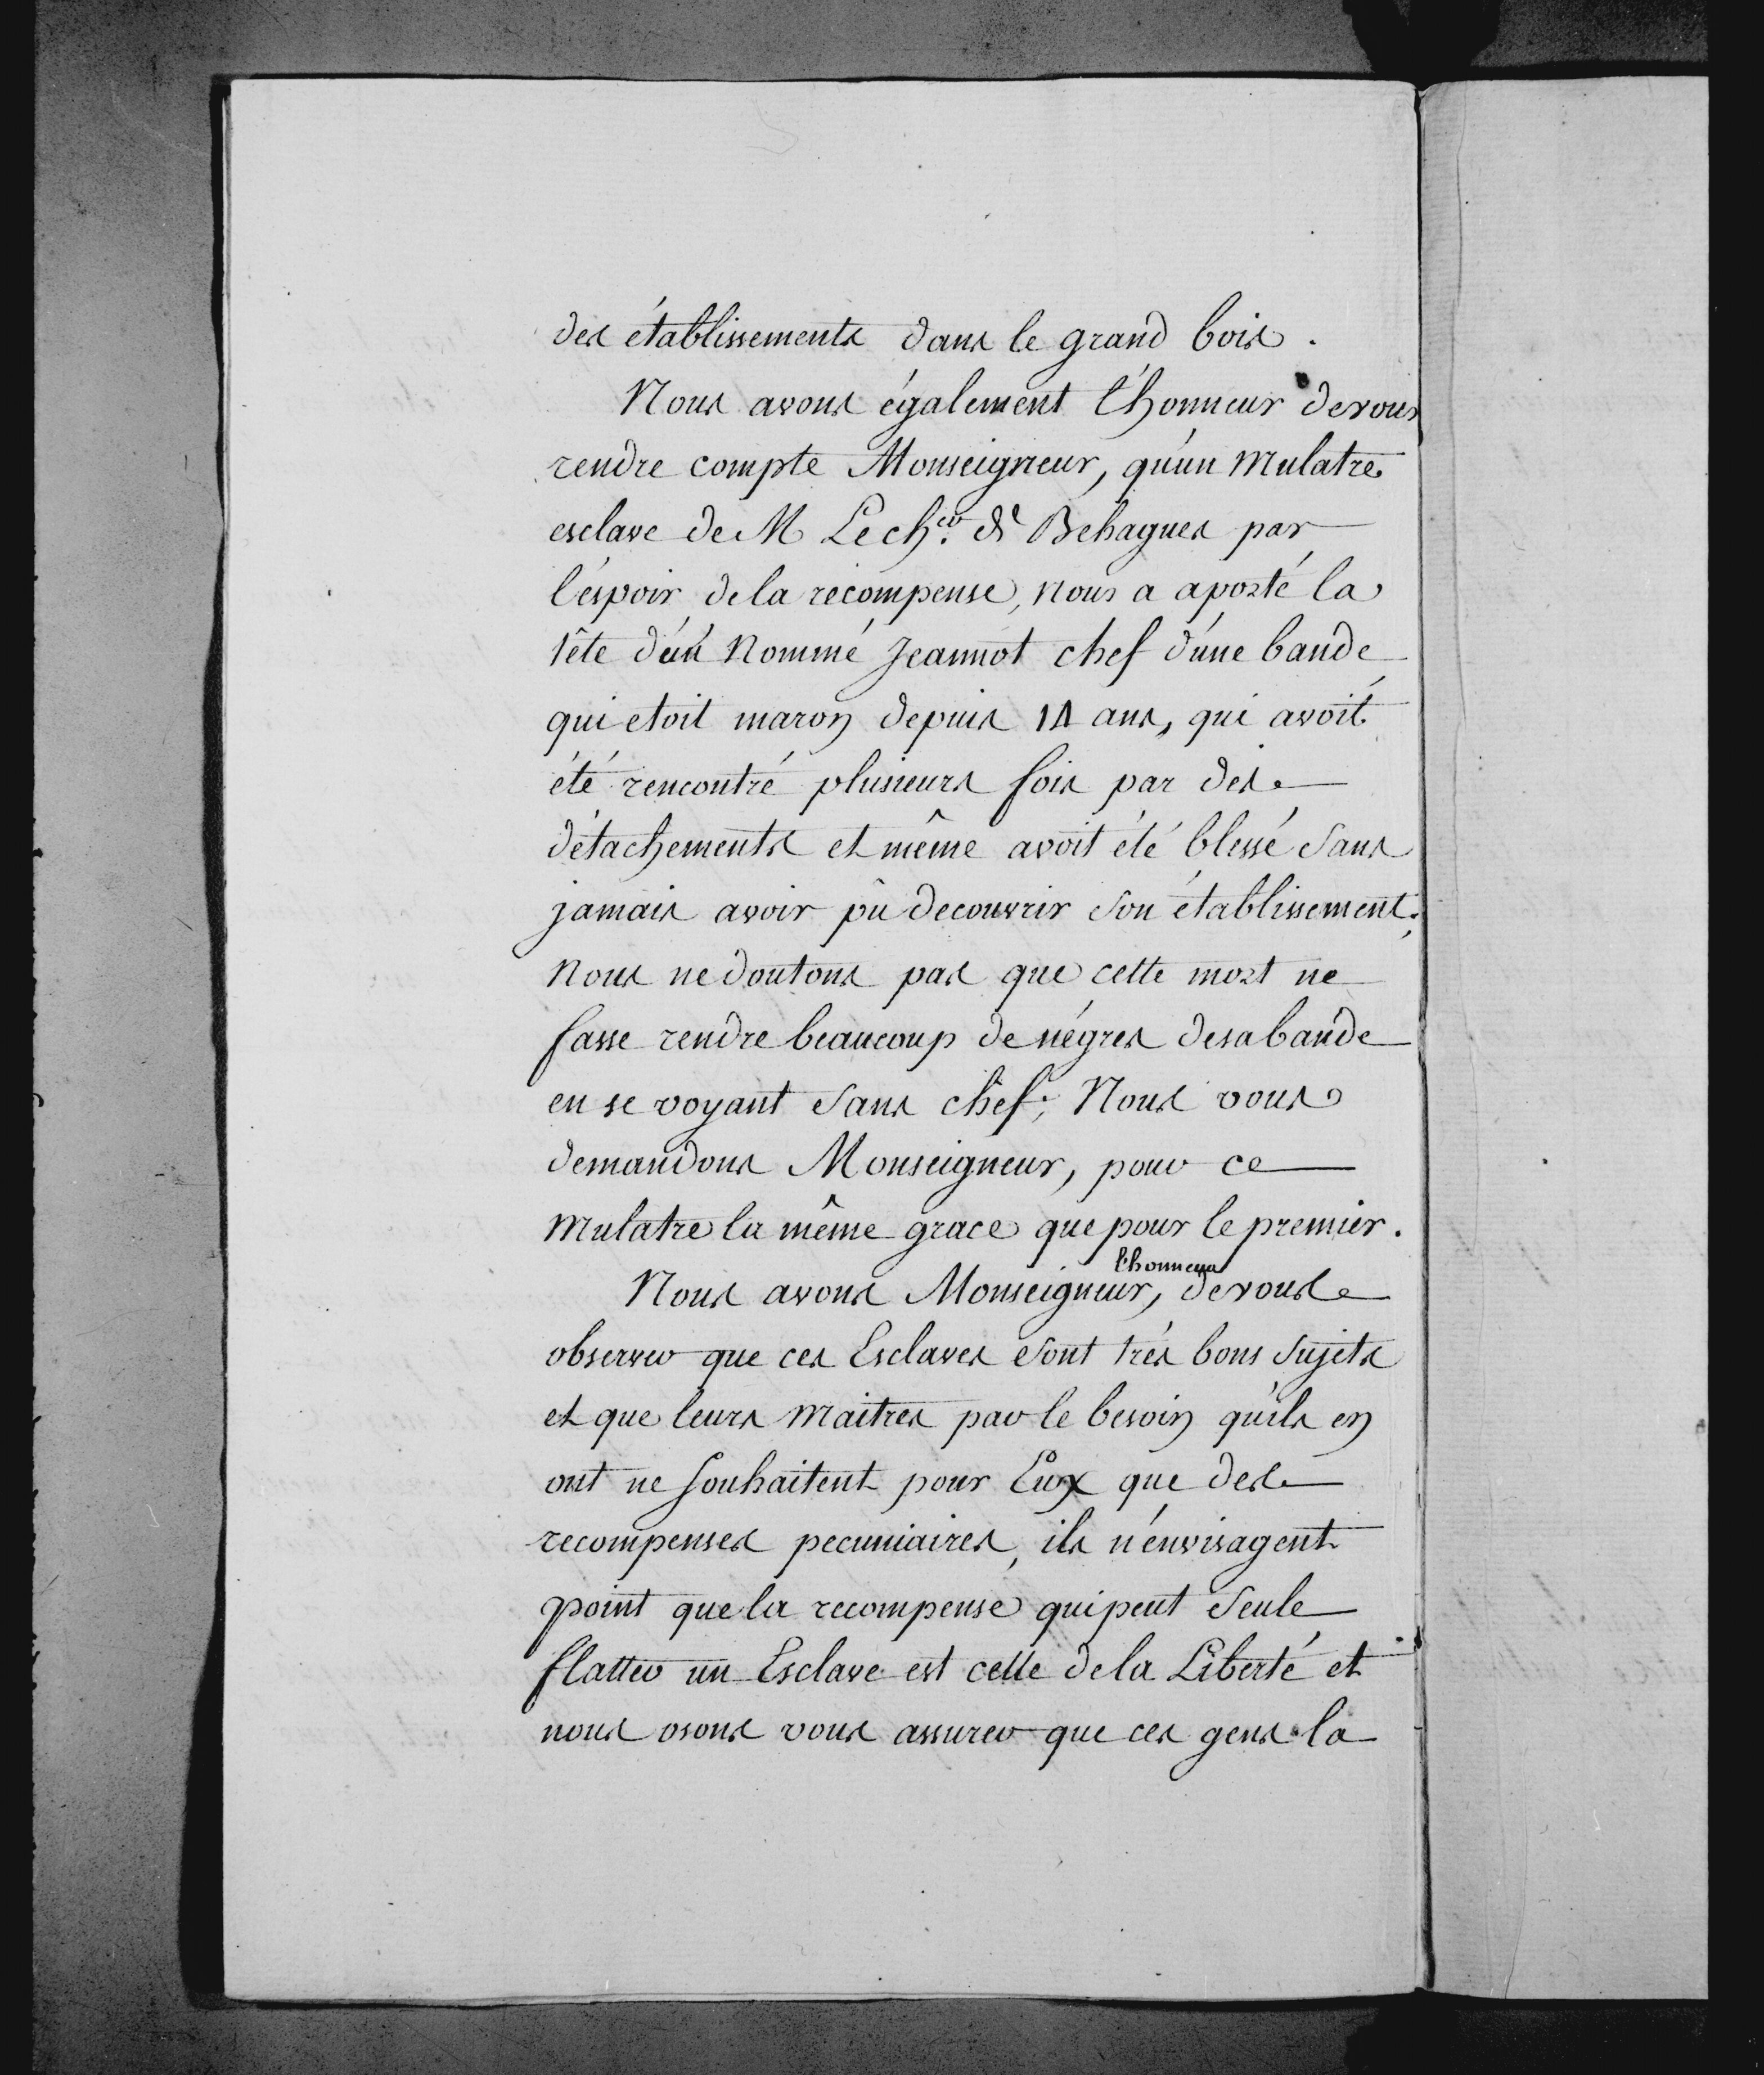 des établissements dans le grand bois.
Nous avons également l'honneur de vous
rendre compte Monseigneur, qu'un Mulatre
esclave de M Le ch.er de Behagues par
l'espoir de la récompense, nous a aporté la
tête d'un Nommé Jeannot chef d'une bande
qui etoit maron depuis 14 ans, qui avoit
été rencontré plusieurs fois par des
détachements et même avoit été blessé sans
jamais avoir pû decouvrir son établissement.
Nous ne doutons pas que cette mort ne
fasse rendre beaucoup de négres de sa bande
en se voyant sans chef; Nous vous
demandons Monseigneur, pour ce
Mulatre la même grace que pour le premier.
l'honneur
Nous avons Monseigneur, de vous
observer que ces Esclaves sont trés bons sujets
et que leurs Maitres par le besoin qu'ils en
ont ne souhaitent pour Eux que des
recompenses pecuniaires, ils n'envisagent
point que la recompense qui peut seule
flatter un Esclave est celle de la Liberté et
nous osons vous assurer que ces gens la